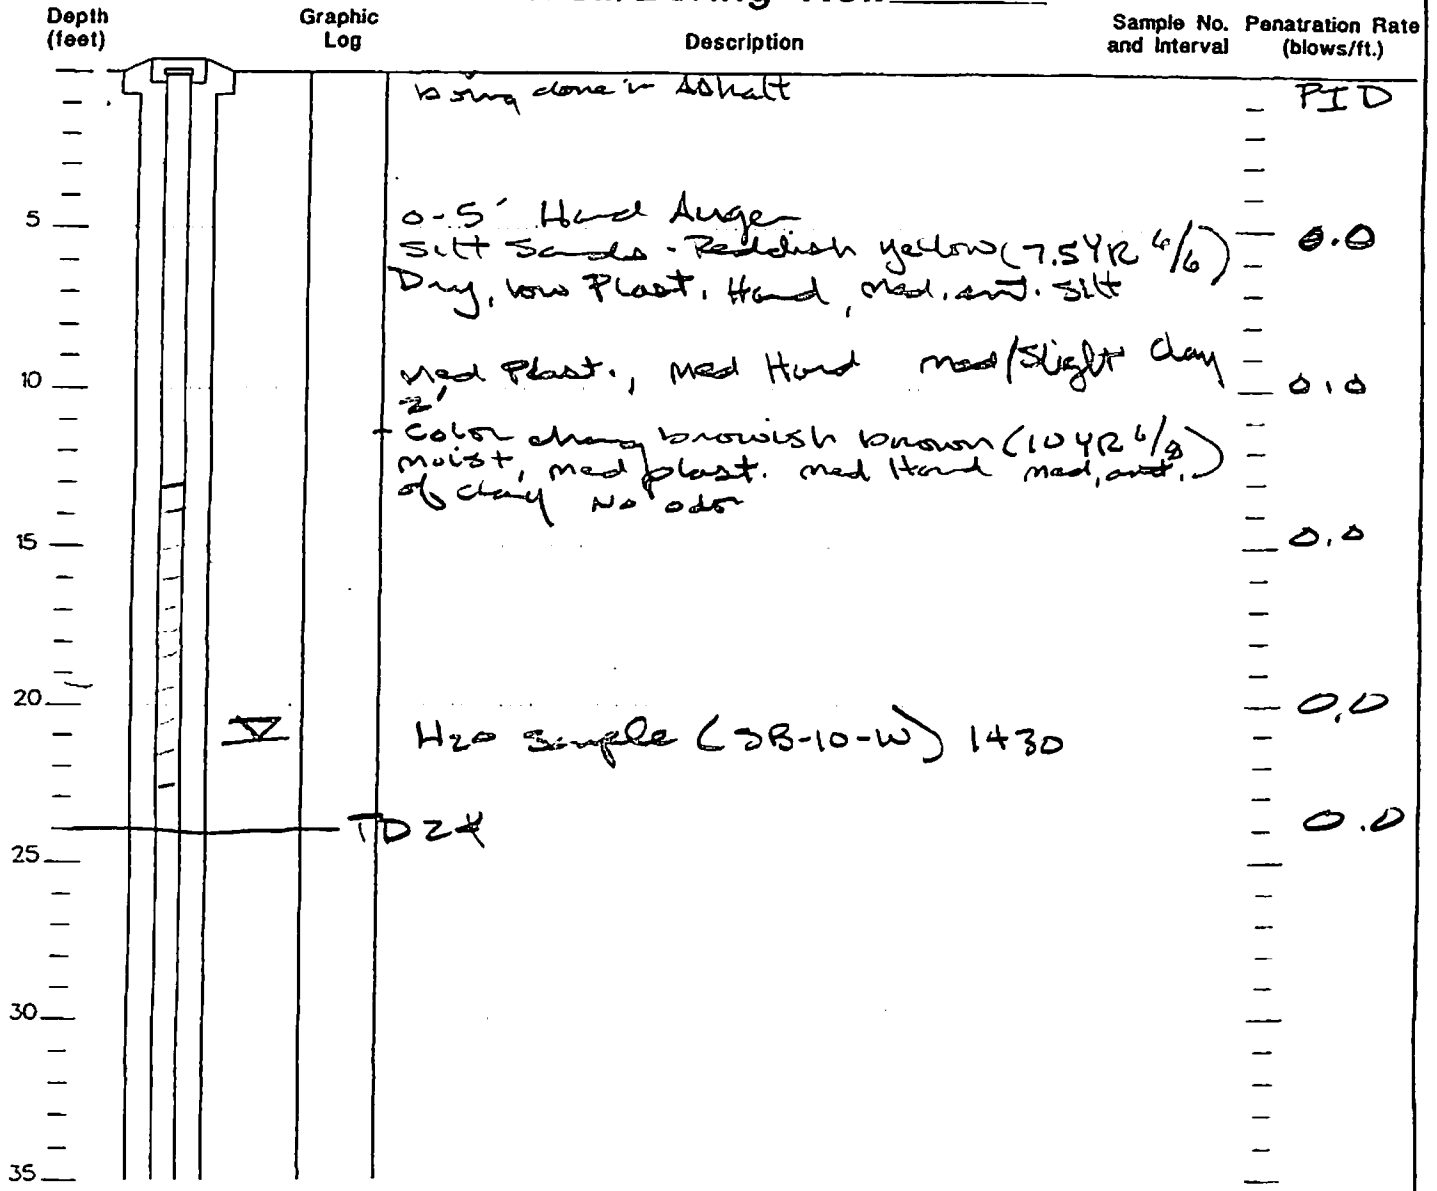 Depth
(feet)
Graphic
Log
Description
Sample No.
and Interval
Penatration Rate
(blows/ft.)
boring done in Ashalt
PID
5
0-5' Hand Auger
Silt Sands - Reddish yellow (7.5YR 6/6)
0.0
Dry, low Plast. Hard, med. amt. silt
10
med Plast., med Hard med/slight clay
0.0
2'
- Color chang browish brown (10YR 6/8)
moist, med plast. med Hard med, amt.
of clay No odor
15
0.0
20
0.0
H2O Sample (SB-10-W) 1430
TD 24
0.0
25
30
35